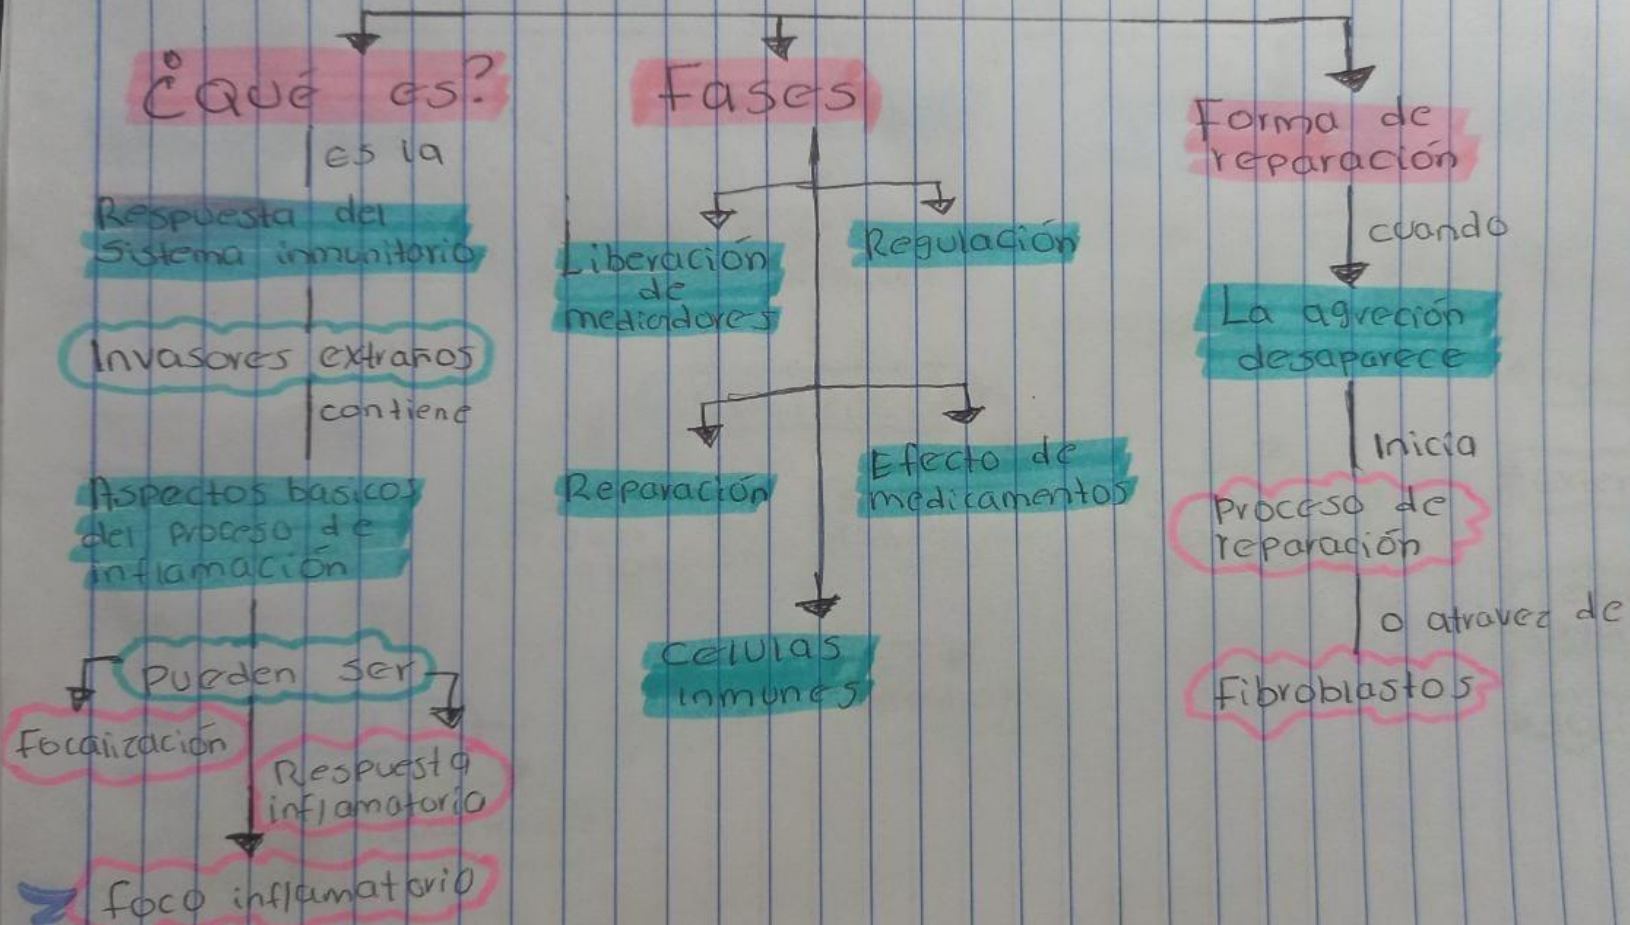 ¿Qué es?
es la
Respuesta del
Sistema inmunitorio
Invasores extraños
contiene
Aspectos basicos
del proceso de
inflamación
pueden ser
Focalización
Respuesta
inflamatoria
foco inflamatorio
Fases
Liberación
de
mediadores
Regulación
Reparación
Efecto de
medicamentos
Celulas
inmunes
Forma de
reparación
cuando
La agreción
desaparece
Inicia
Proceso de
reparación
o atravez de
Fibroblastos